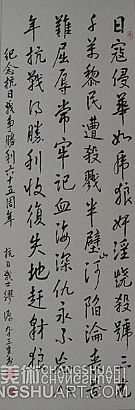 日寇侵華如虎狼奸淫燒殺號三光
千萬黎民遭殺戮半壁山河陷淪喪
難屈辱常牢記血海深仇永不忘
年抗戰得勝利收復失地赶射狼
纪念抗日战争勝利六十五周年
抗日战士